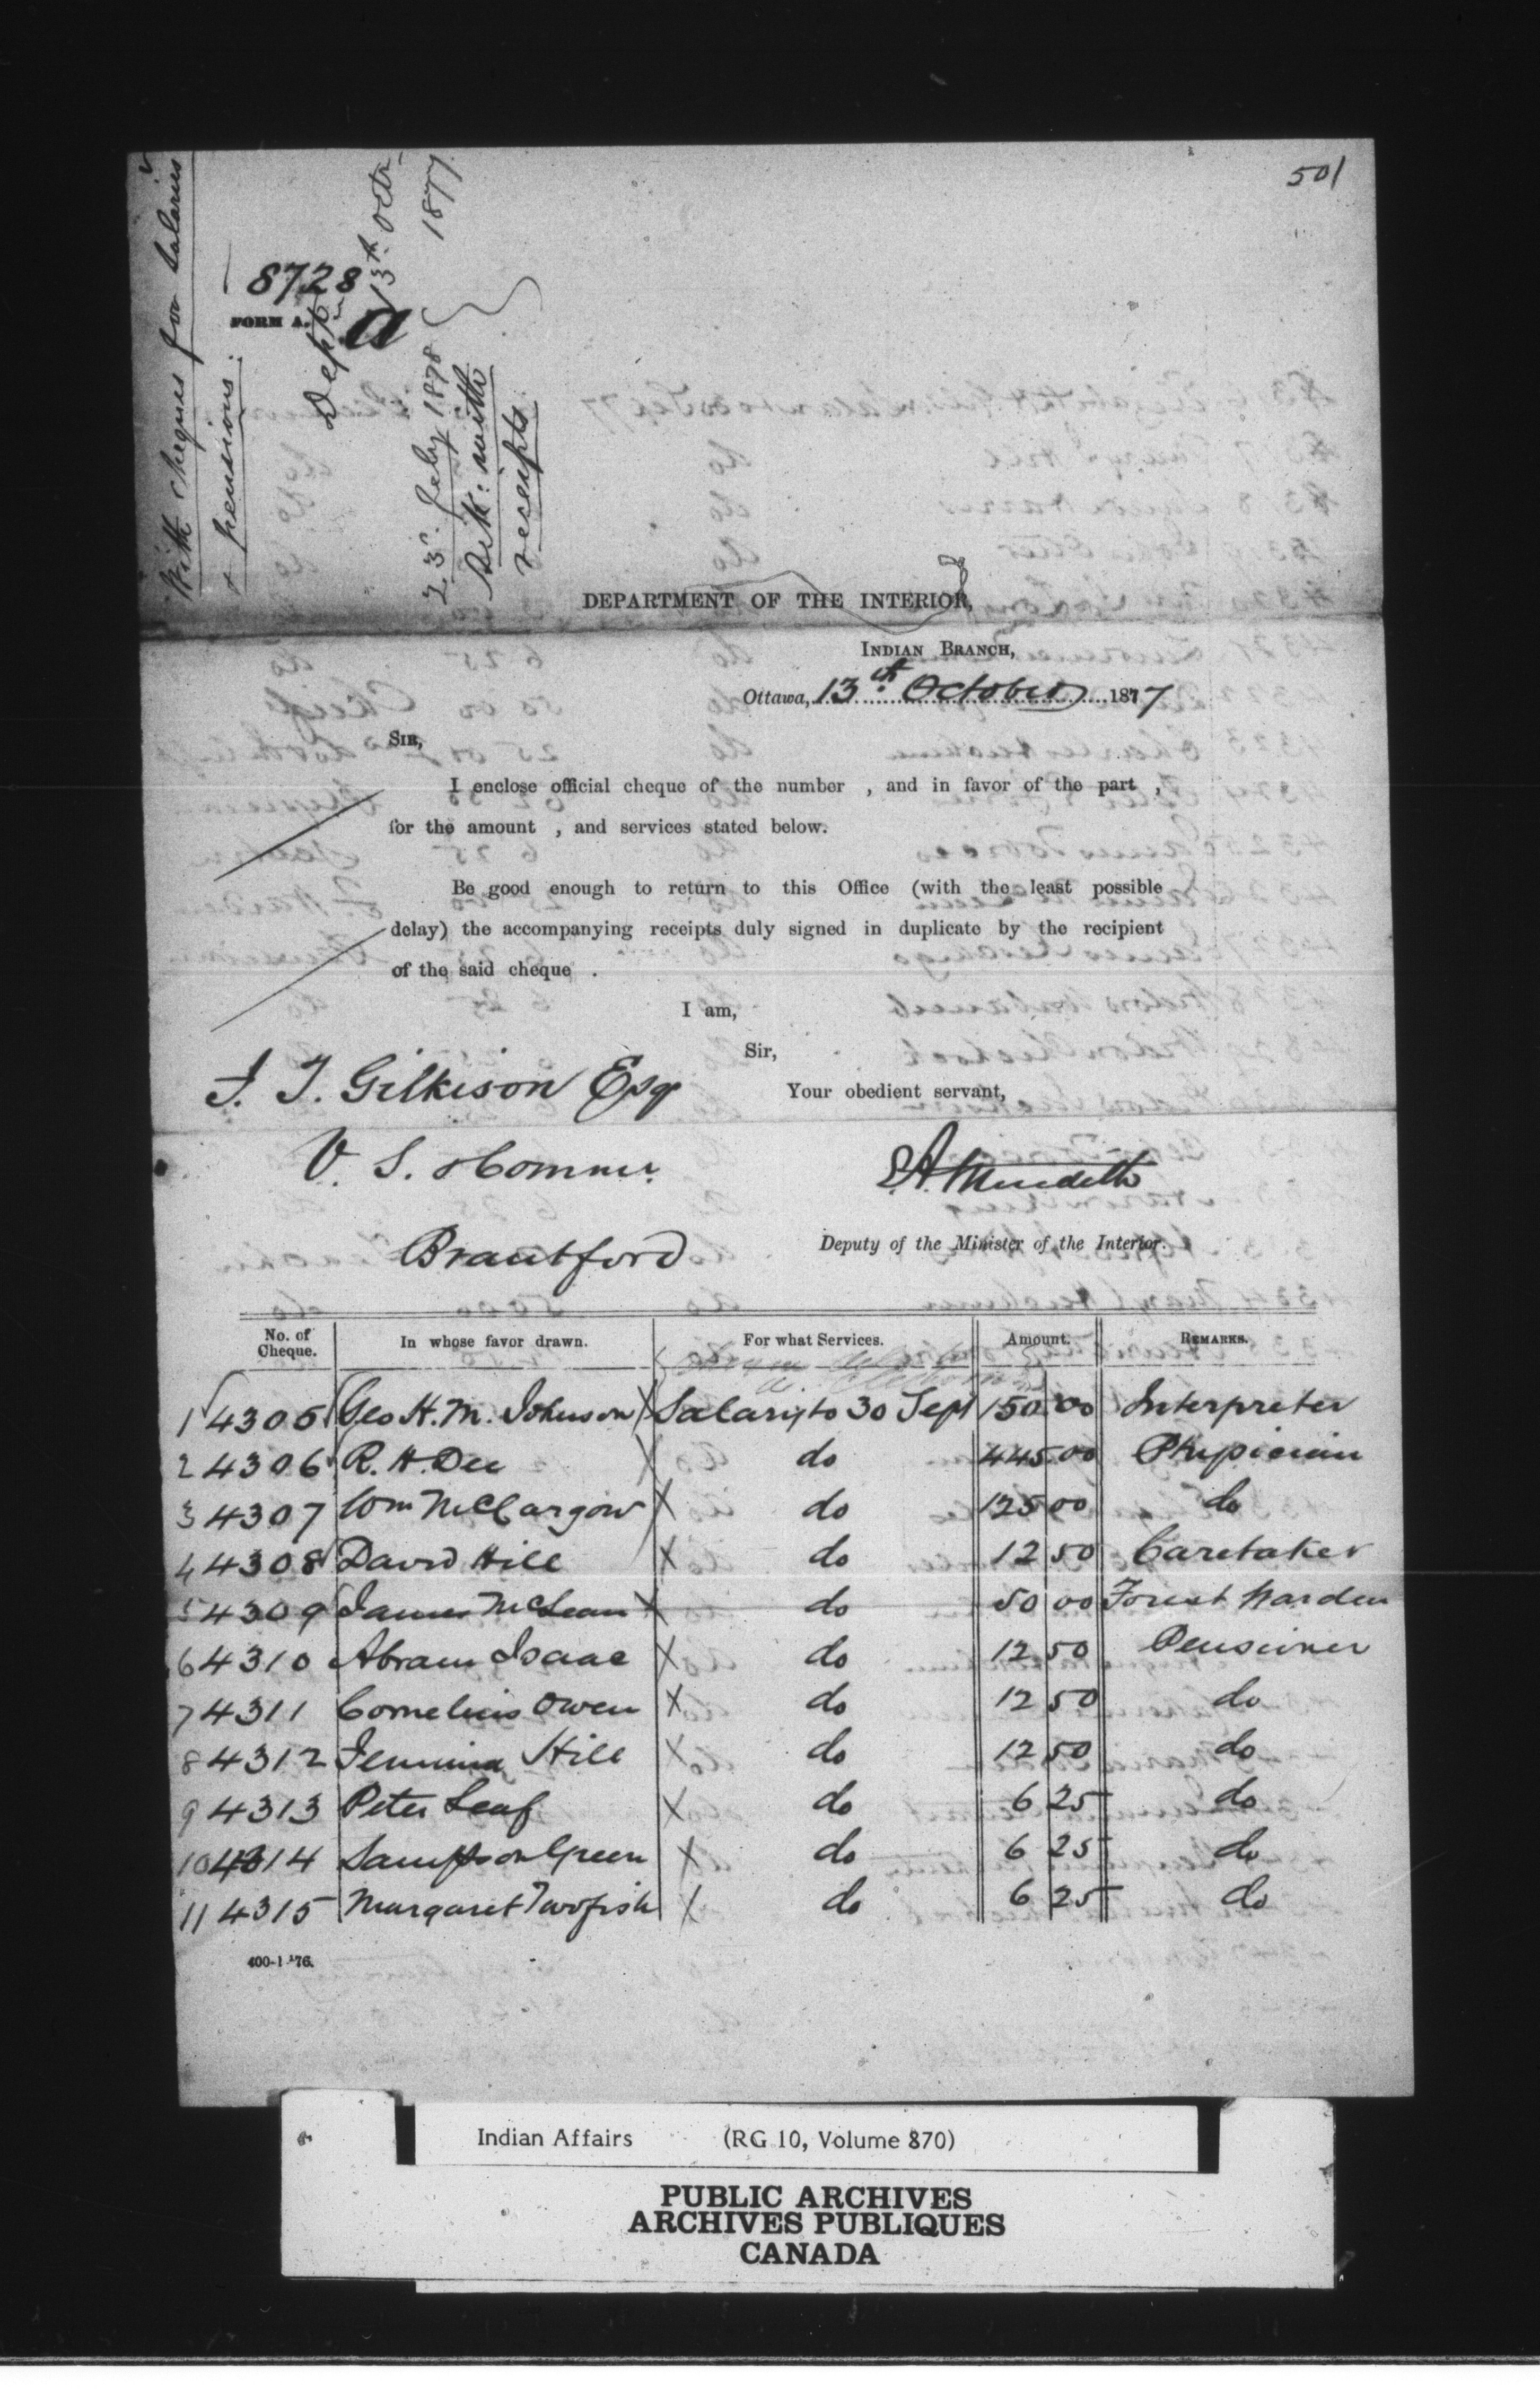 501
With cheques for Salaries
& pensions.
8728
FORM A.
a
Deptr 13th Octr
1877
23r. July 1878
Ditto: with
receipts
DEPARTMENT OF THE INTERIOR,
INDIAN BRANCH,
Ottawa, 13th October 1877
SIR,
I enclose official cheque of the number , and in favor of the part ,
for the amount , and services stated below.
Be good enough to return to this Office (with the least possible
delay) the accompanying receipts duly signed in duplicate by the recipient
of the said cheque .
I am,
Sir,
Your obedient servant,
J. T. Gilkison Esq
V. S. Commr.
Brantford
E.A. Meredith
Deputy of the Minister of the Interior.
No. of Cheque. In whose favor drawn. For what Services. Amount. REMARKS.
1 4305 Geo H. M. Johnson X Salary to 30 Sept 150 00 Interpreter
2 4306 R. H. Dee X do 445 00 Physician
3 4307 Wm McCargow X do 125 00 do
4 4308 David Hill X do 12 50 Caretaker
5 4309 James McLean X do 50 00 Forest Warden
6 4310 Abram Isaac X do 12 50 Pensioner
7 4311 Cornelius Owen X do 12 50 do
8 4312 Jemima Hill X do 12 50 do
9 4313 Peter Leaf X do 6 25 do
10 4314 Sampson Green X do 6 25 do
11 4315 Margaret Twofish X do 6 25 do
400-1-'76.
Indian Affairs (RG 10, Volume 870)
PUBLIC ARCHIVES
ARCHIVES PUBLIQUES
CANADA